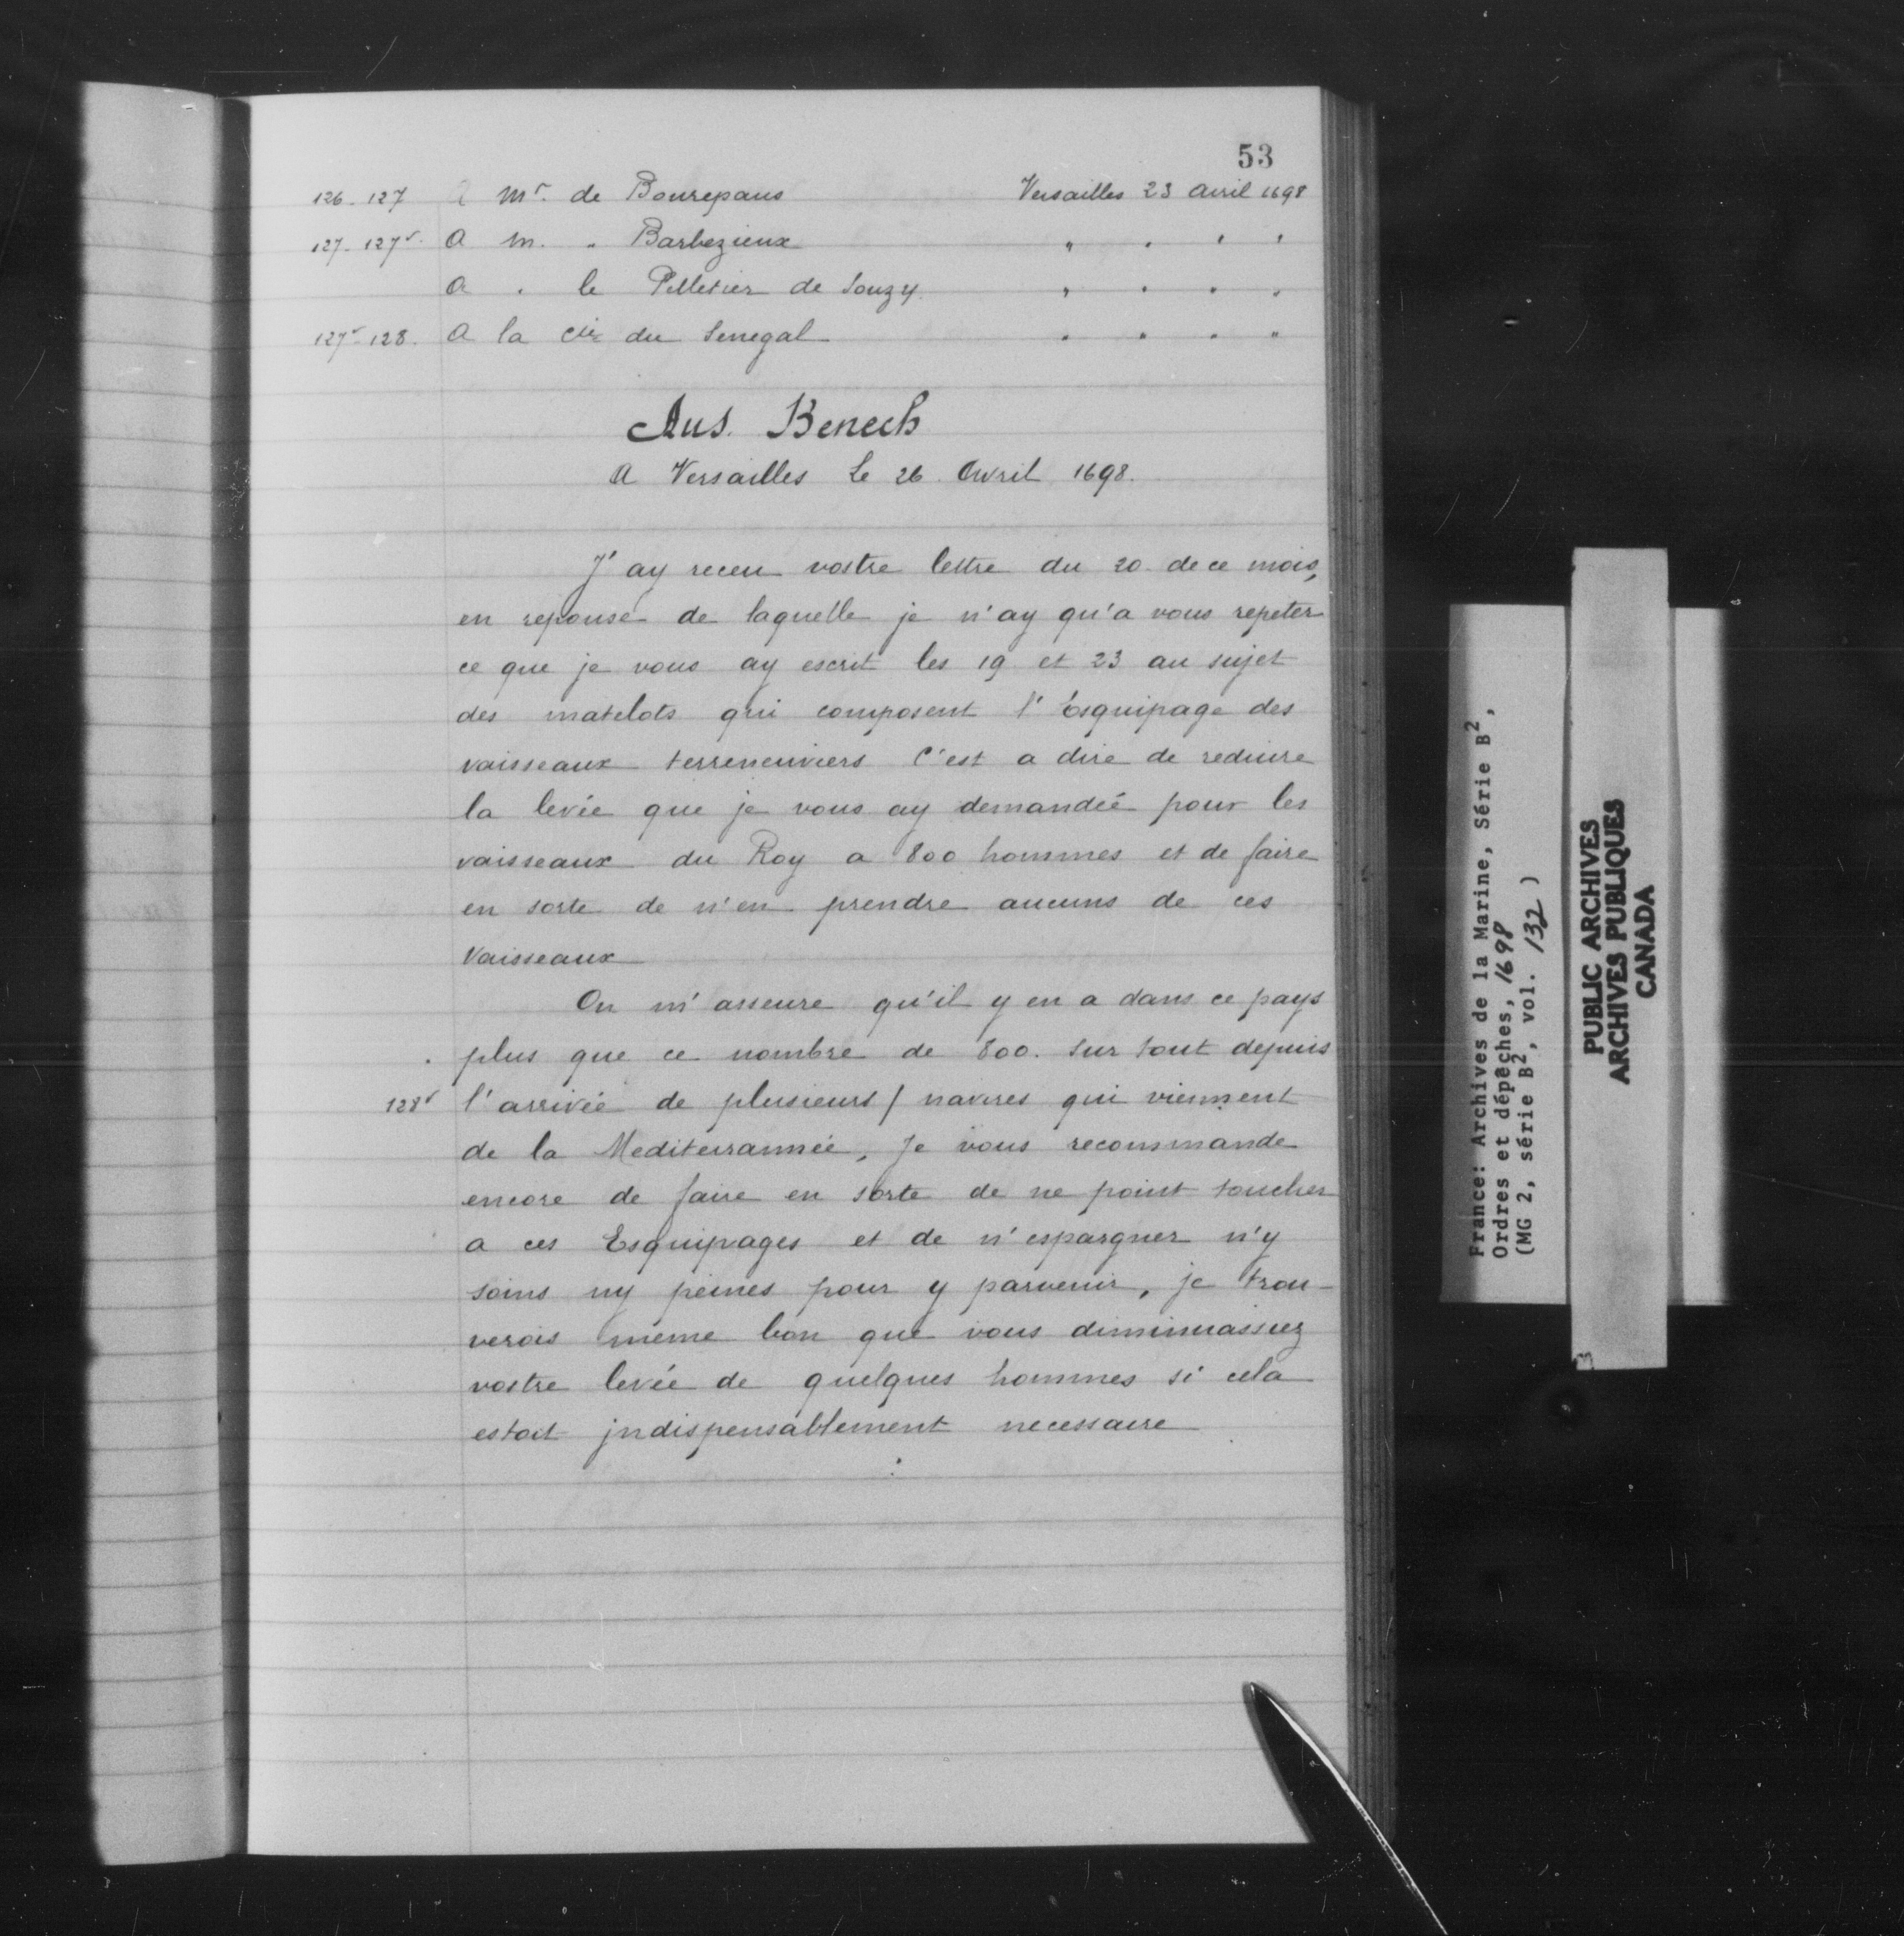 53
126-127 A Mr. de Bonrepaus Versailles 23 avril 1698
127-127v. A M. " Barbezieux " " " "
A " le Pelletier de Souzy " " " "
127v-128. A la Cie du Senegal " " " "
Au S. Benech
A Versailles Le 26 Avril 1698.
J'ay receu vostre lettre du 20 de ce mois,
en reponse de laquelle je n'ay qu'a vous repeter
ce que je vous ay escrit les 19 et 23 au sujet
des matelots qui composent l'Esquipage des
vaisseaux terreneuviers C'est a dire de reduire
la levée que je vous ay demandée pour les
vaisseaux du Roy a 800 hommes et de faire
en sorte de n'en prendre aucuns de ces
Vaisseaux
On m'asseure qu'il y en a dans ce pays
plus que ce nombre de 800. sur tout depuis
128v l'arrivée de plusieurs / navires qui viennent
de la Mediterrannée, Je vous recommande
encore de faire en sorte de ne point toucher
a ces Esquipages et de n'espargner n'y
soins ny peines pour y parvenir, je trou-
verois meme bon que vous diminuassiez
vostre levée de quelques hommes si cela
estoit jndispensablement necessaire
France: Archives de la Marine, Série B2,
Ordres et dépêches, 1698
(MG 2, série B2, vol. 132)
PUBLIC ARCHIVES
ARCHIVES PUBLIQUES
CANADA